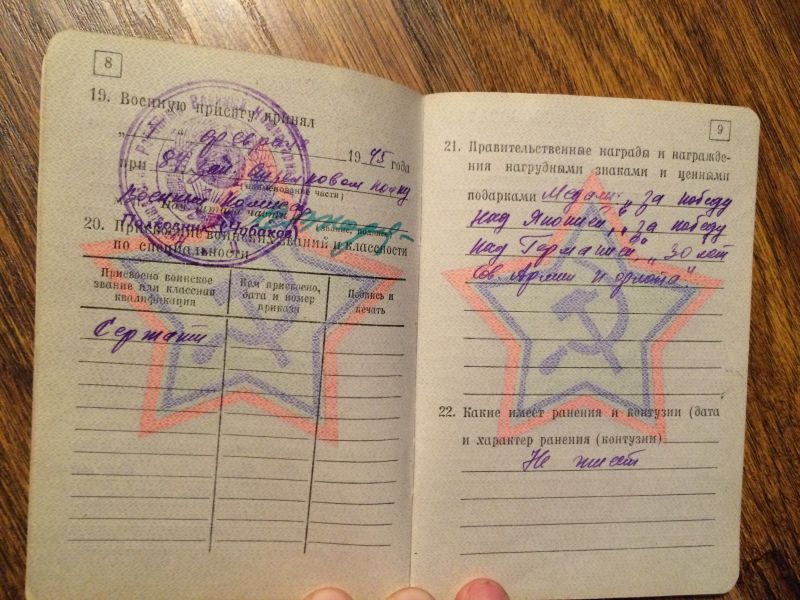 8
19. Военную присягу принял
„ 7 “ февраля 1945 года
при 84 зап. стрелковом полку
(наименование части)
Военный комиссар
20. Присвоение воинских званий и классности
по специальности
Присвоено воинское звание или классная квалификация
Кем присвоено, дата и номер приказа
Подпись и печать
Сержант
9
21. Правительственные награды и награжде-
ния нагрудными знаками и ценными
подарками Медали „За победу
над Японией“, „За победу
над Германией“ „30 лет
Сов. Армии и флота“
22. Какие имеет ранения и контузии (дата
и характер ранения (контузии)
Не имеет